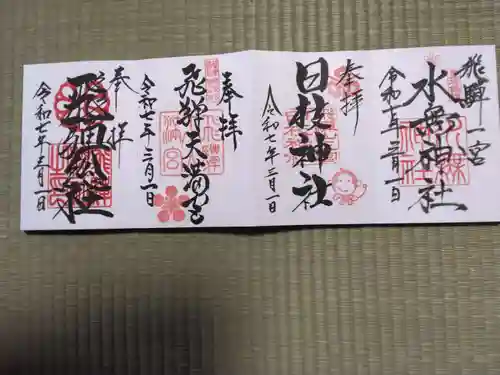 飛騨一宮
水無神社
令和七年三月一日
奉拝
日枝神社
令和七年三月一日
奉拝
飛騨天満宮
令和七年三月一日
奉拝
令和七年三月一日